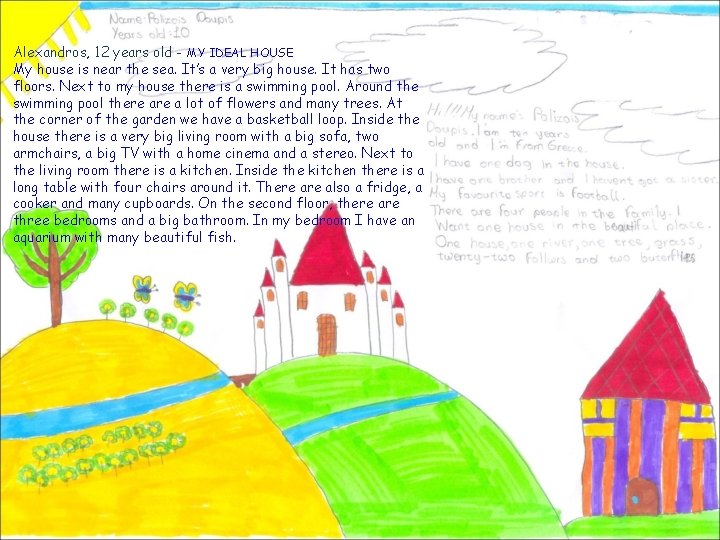 Name: Polizois Doupis
Years old: 10
Alexandros, 12 years old - MY IDEAL HOUSE
My house is near the sea. It's a very big house. It has two
floors. Next to my house there is a swimming pool. Around the
swimming pool there are a lot of flowers and many trees. At
the corner of the garden we have a basketball loop. Inside the
house there is a very big living room with a big sofa, two
armchairs, a big TV with a home cinema and a stereo. Next to
the living room there is a kitchen. Inside the kitchen there is a
long table with four chairs around it. There are also a fridge, a
cooker and many cupboards. On the second floor, there are
three bedrooms and a big bathroom. In my bedroom I have an
aquarium with many beautiful fish.
Hi!!! My name's Polizois
Doupis. I am ten years
old and I'm from Greece.
I have one dog in the house.
I have one brother and I havent got a sister.
My favourite sport is football.
There are four people in the family. I
Want one house in the beautiful place.
One house, one river, one tree, grass,
twenty-two and two